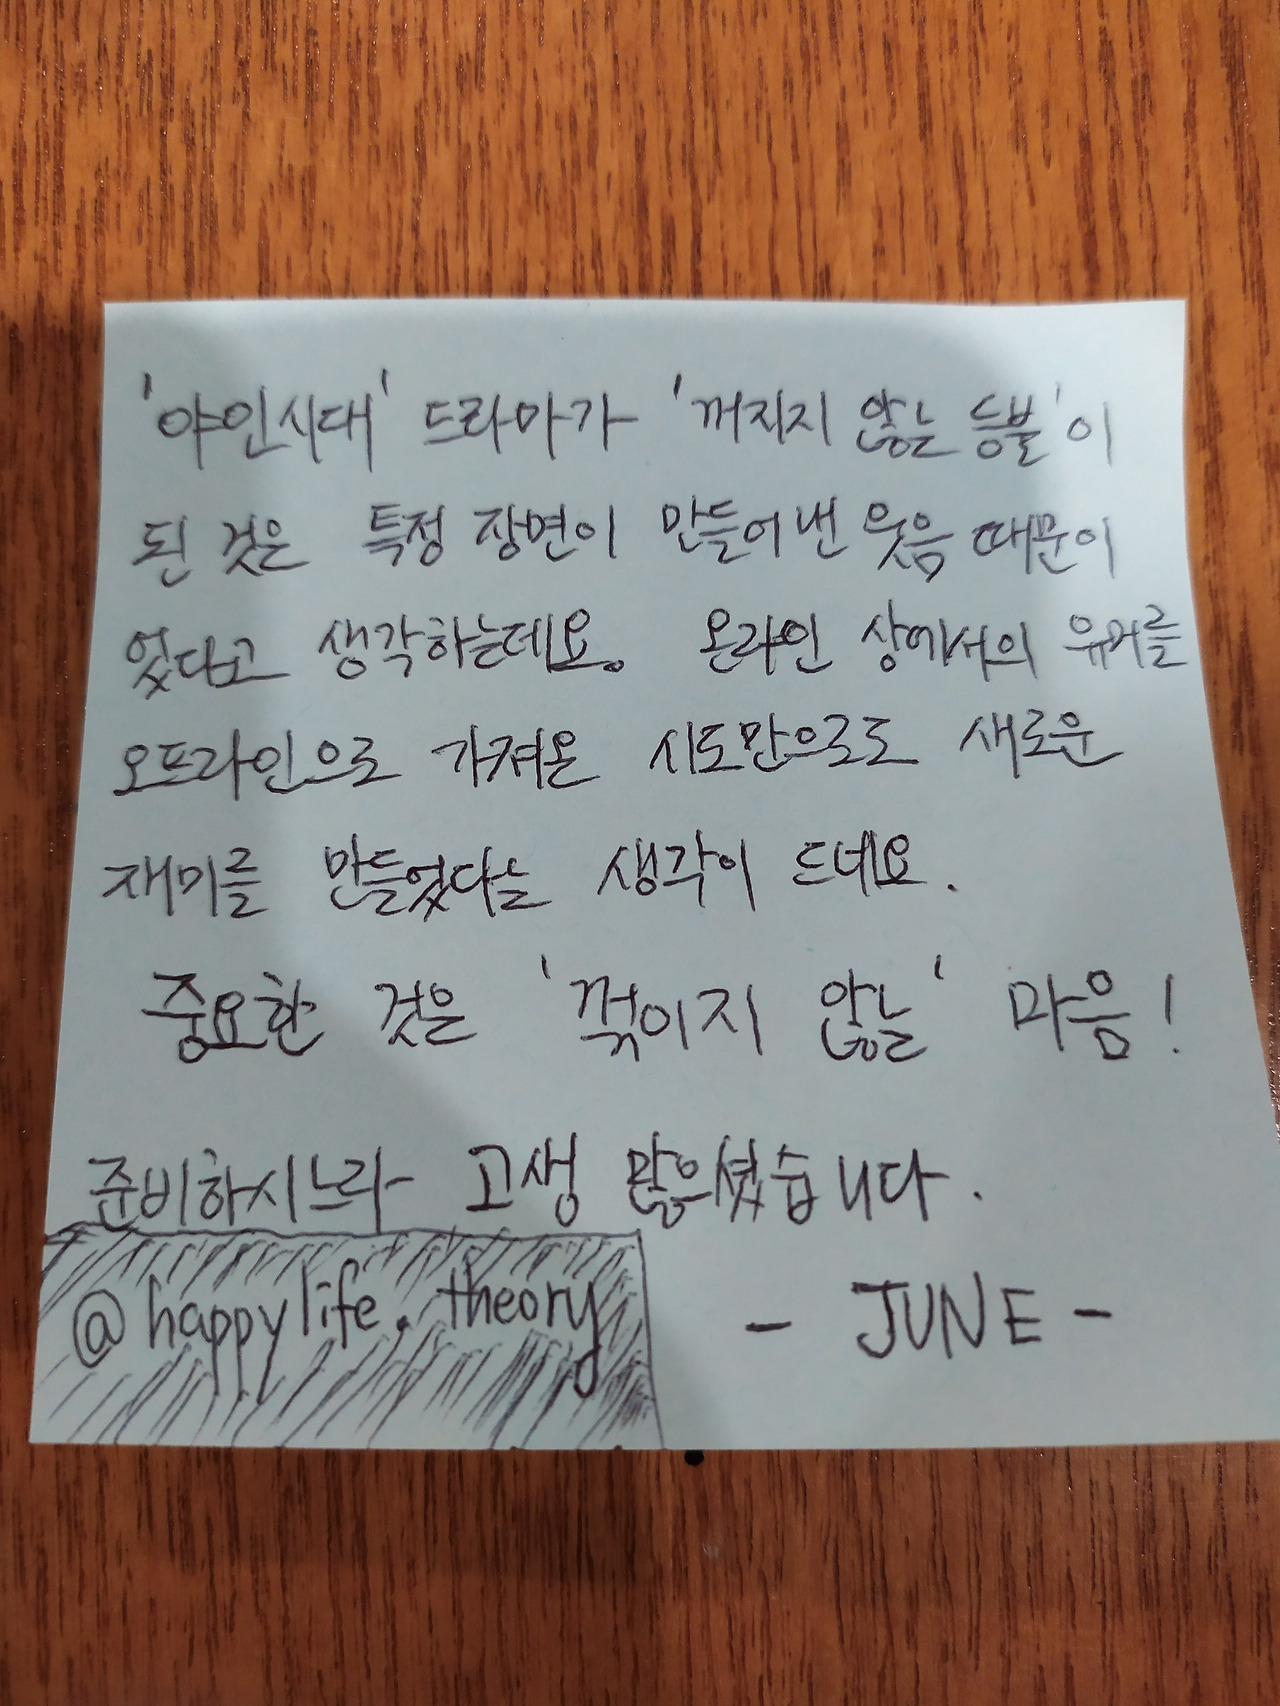 '야인시대' 드라마가 '꺼지지 않는 등불'이
된 것은 특정 장면이 만들어낸 웃음 때문이
었다고 생각하는데요. 온라인 상에서의 유머를
오프라인으로 가져온 시도만으로도 새로운
재미를 만들었다는 생각이 드네요.
중요한 것은 '꺾이지 않는' 마음!
준비하시느라 고생 많으셨습니다.
@happylife.theory - JUNE -